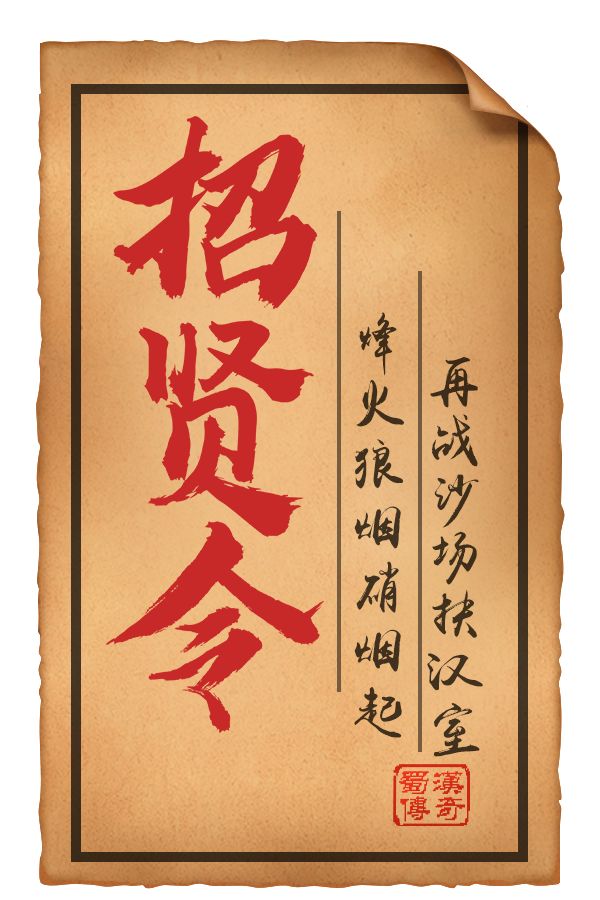 招贤令
烽火狼烟硝烟起
再战沙场扶汉室
蜀漢
傳奇